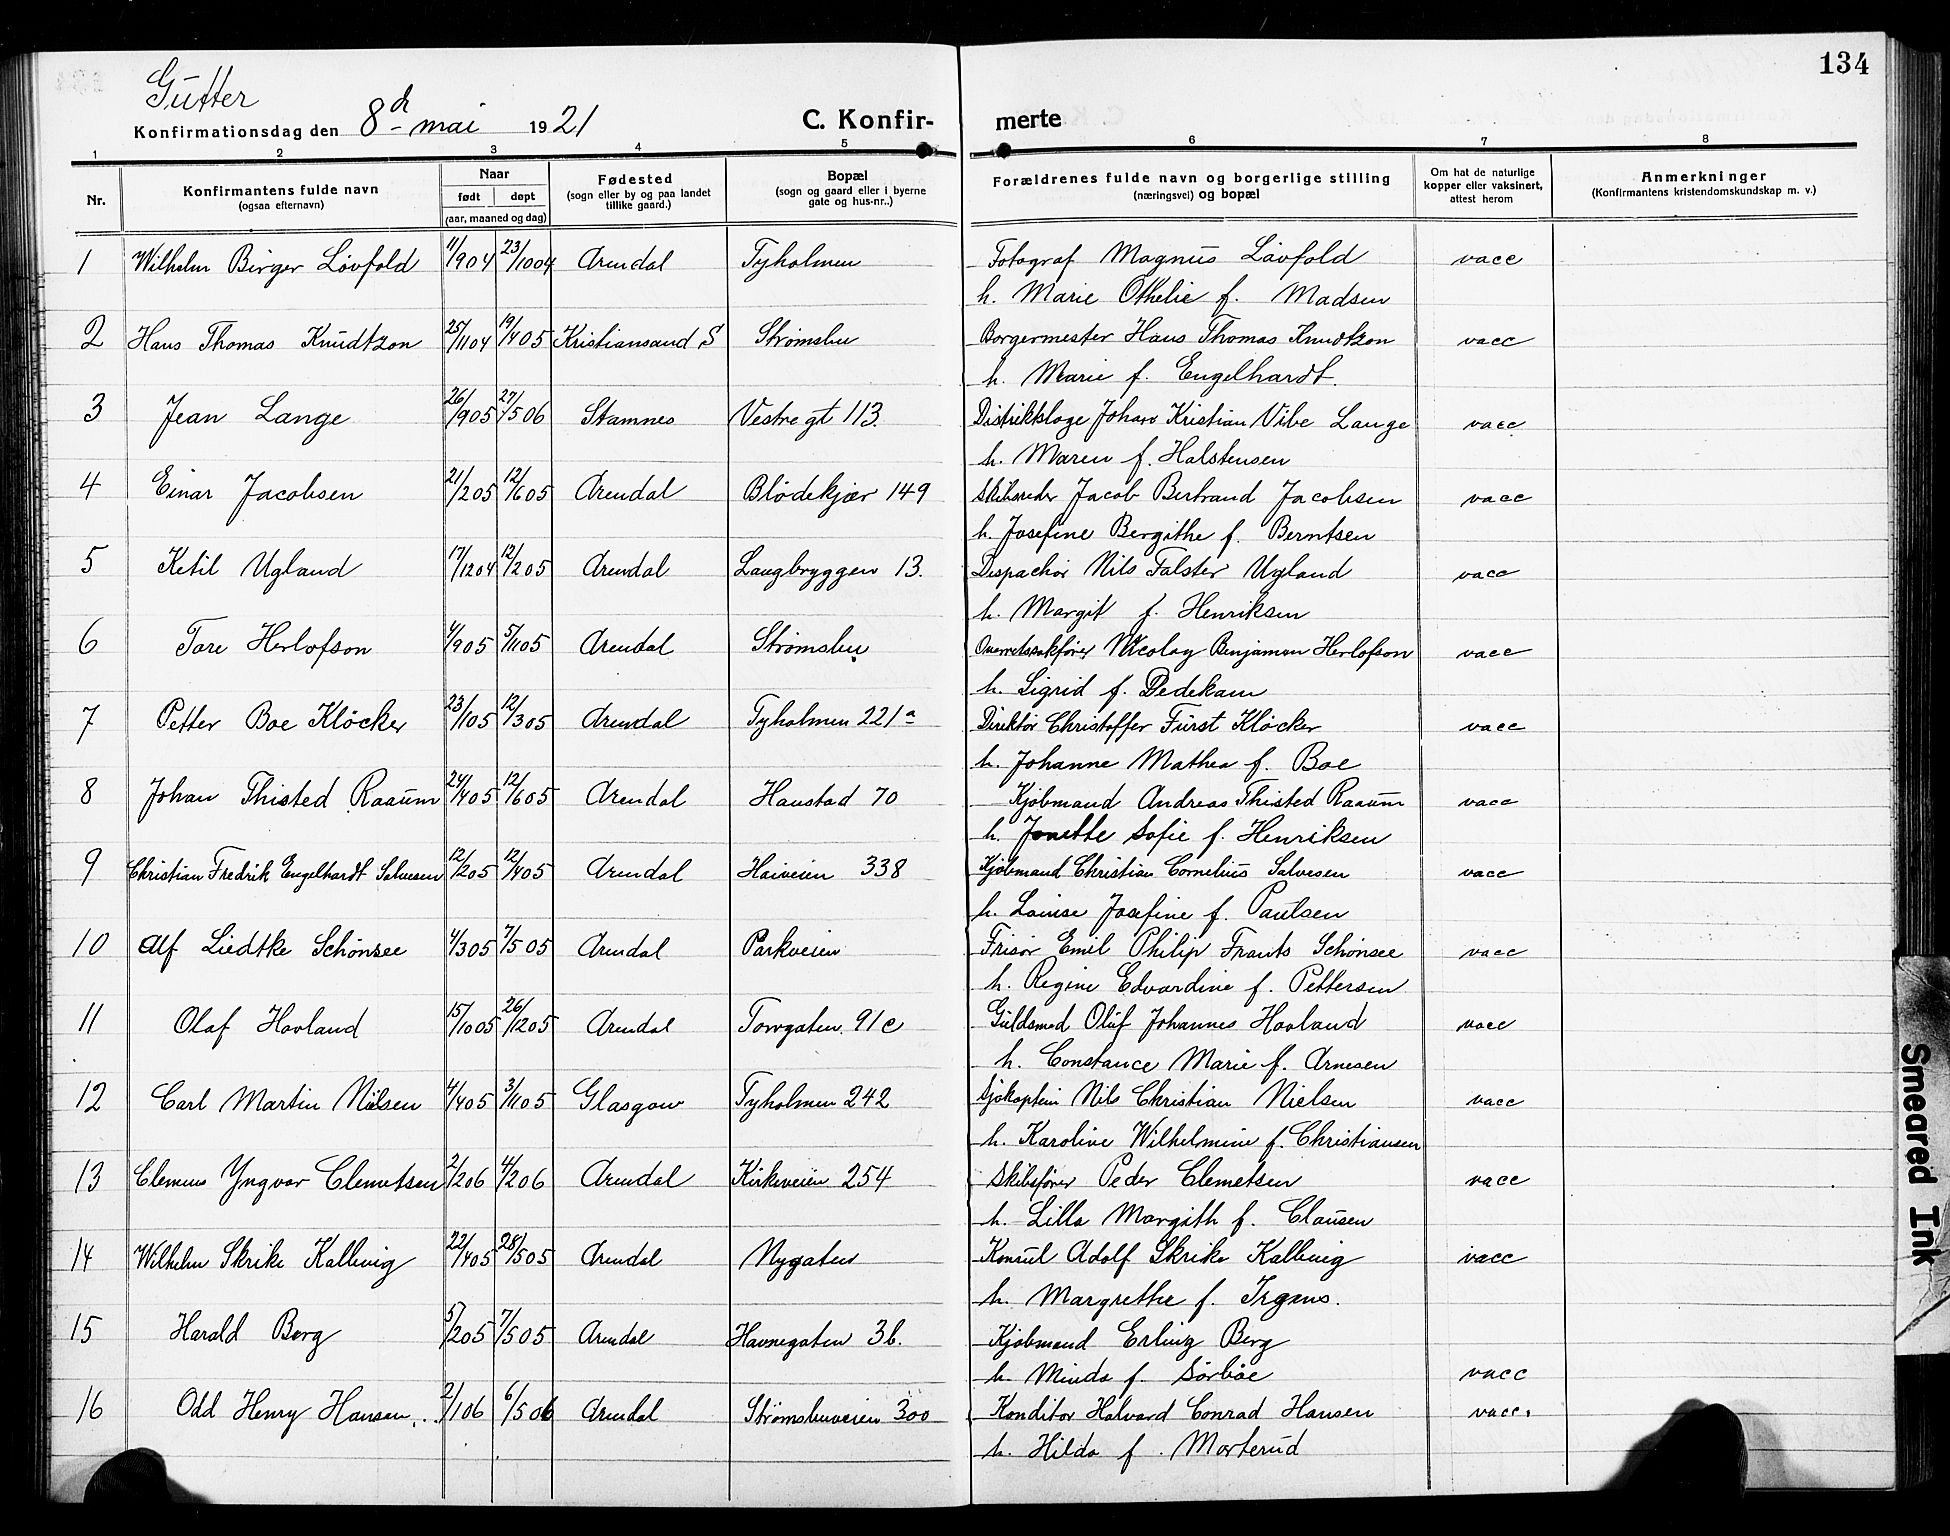 134
Gutter
Konfirmationsdag den 8d mai 1921
C. Konfirmerte
1 2 3 4 5 6 7 8
Nr. Konfirmantens fulde navn (ogsaa efternavn) Naar født døpt (aar, maaned og dag) Fødested (sogn eller by og paa landet tillike gaard.) Bopæl (sogn og gaard eller i byerne gate og hus-nr..) Forældrenes fulde navn og borgerlige stilling (næringsvei) og bopæl Om hat de naturlige kopper eller vaksinert, attest herom Anmerkninger (Konfirmantens kristendomskundskap m. v.)
1 Wilhelm Birger Lövfold 11/904 23/1004 Arendal Tyholmen Fotograf Magnus Lövfold vacc
h. Marie Othelie f. Madsen
2 Hans Thomas Knudtzon 25/1104 19/405 Kristiansand S Strømsbu Borgermester Hans Thomas Knudtzon vacc
h. Marie f. Engelhardt.
3 Jean Lange 26/905 27/506 Stamnes Vestre gt 113. Distriktslæge Johan Kristian Vibe Lange vacc
h. Maren f. Halstensen
4 Einar Jacobsen 21/205 12/605 Arendal Blødekjær 149 Skibsreder Jacob Bertrand Jacobsen vacc
h. Josefine Bergithe f. Berntsen
5 Ketil Ugland 17/1204 12/205 Arendal Langbryggen 13. Dispachør Nils Falster Ugland vacc
h. Margit f. Henriksen
6 Tore Herlofson 4/905 5/1105 Arendal Strømsbu Overretssakfører Nicolay Benjamin Herlofson vacc
h. Sigrid f. Dedekam
7 Petter Boe Klöcker 23/105 12/305 Arendal Tyholmen 221a Direktör Christoffer Fürst Klöcker vacc
h. Johanne Mathea f. Boe
8 Johan Thisted Raaum 24/405 12/605 Arendal Haustad 70 Kjöbmand Andreas Thisted Raaum vacc
h. Jonette Sofie f. Henriksen
9 Christian Fredrik Engelhardt Salvesen 12/205 12/405 Arendal Haiveien 338 Kjöbmand Christian Cornelius Salvesen vacc
h. Louise Josefine f. Paulsen
10 Alf Liedtke Schönsee 4/305 7/505 Arendal Parkveien Frisör Emil Philip Frants Schönsee vacc
h. Regine Edvardine f. Pettersen
11 Olaf Hovland 15/1005 26/1205 Arendal Torvgaten 91c Guldsmed Oluf Johannes Hovland vacc
h. Constance Marie f. Arnesen
12 Carl Martin Nilsen 4/405 3/1105 Glasgow Tyholmen 242 Sjökaptein Nils Christian Nielsen vacc
h. Karoline Wilhelmine f. Christiansen
13 Clemens Yngvar Clemetsen 2/206 4/206 Arendal Kirkeveien 254 Skibsförer Peder Clemetsen vacc
h. Lilla Margith f. Clausen
14 Wilhelm Skrike Kallevig 22/405 28/505 Arendal Nygaten Konsul Adolf Skrike Kallevig vacc
h. Margrethe f. Irgens.
15 Harald Berg 5/205 7/505 Arendal Havnegaten 3b. Kjöbmand Erling Berg
h. Minda f. Sörböe vacc
16 Odd Henry Hansen 2/106 6/506 Arendal Strømsbuveien 300 Konditor Halvard Conrad Hansen vacc.
h. Hilda f. Morterud
Smeared Ink